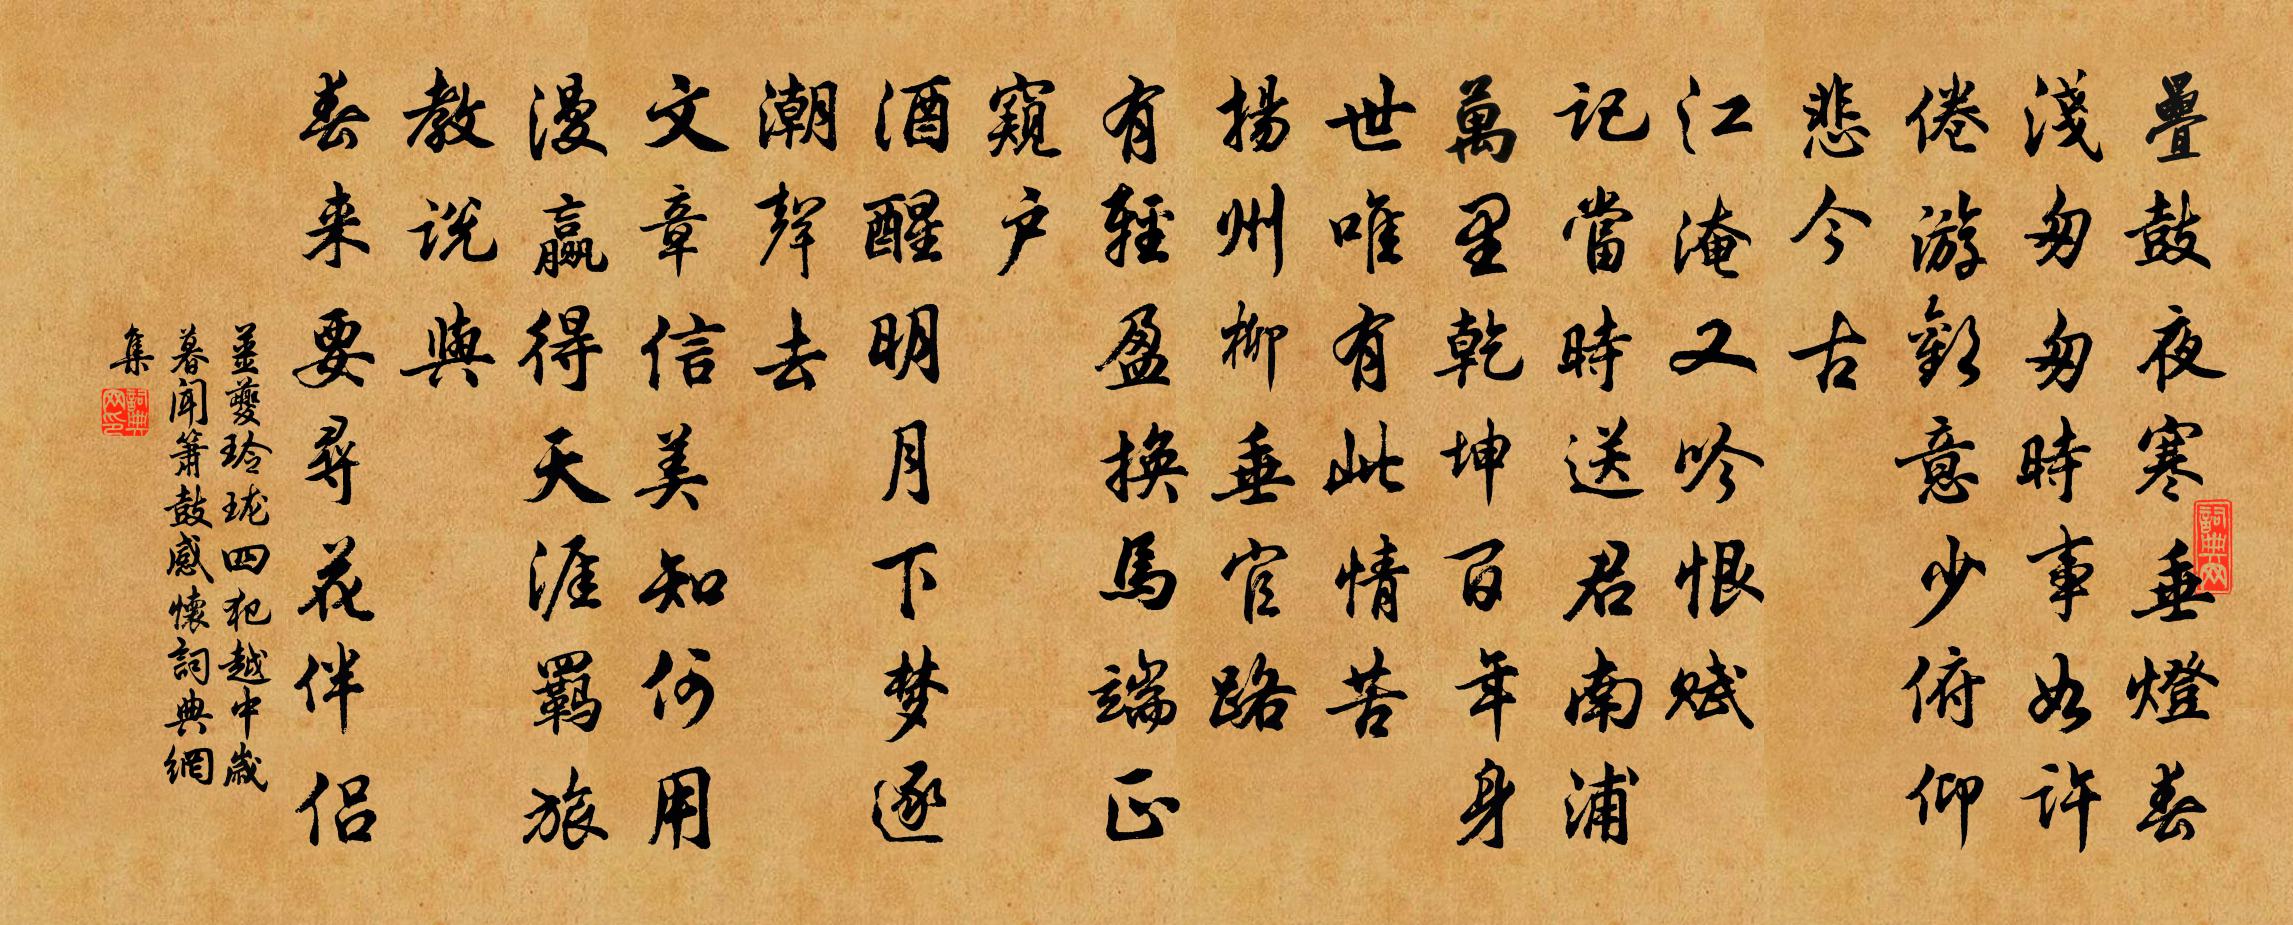 疊鼓夜寒垂燈春
淺匆匆時事如許
倦游歡意少俯仰
悲今古
江淹又吟恨賦
記當時送君南浦
萬里乾坤百年身
世唯有此情苦
揚州柳垂官路
有輕盈換馬端正
窺户
酒醒明月下梦逐
潮聲去
文章信美知何用
漫贏得天涯羈旅
教説與
春来要尋花伴侣
姜夔玲珑四犯越中歲
暮闻箫鼓感懷詞典網
集
詞典网
詞典网印